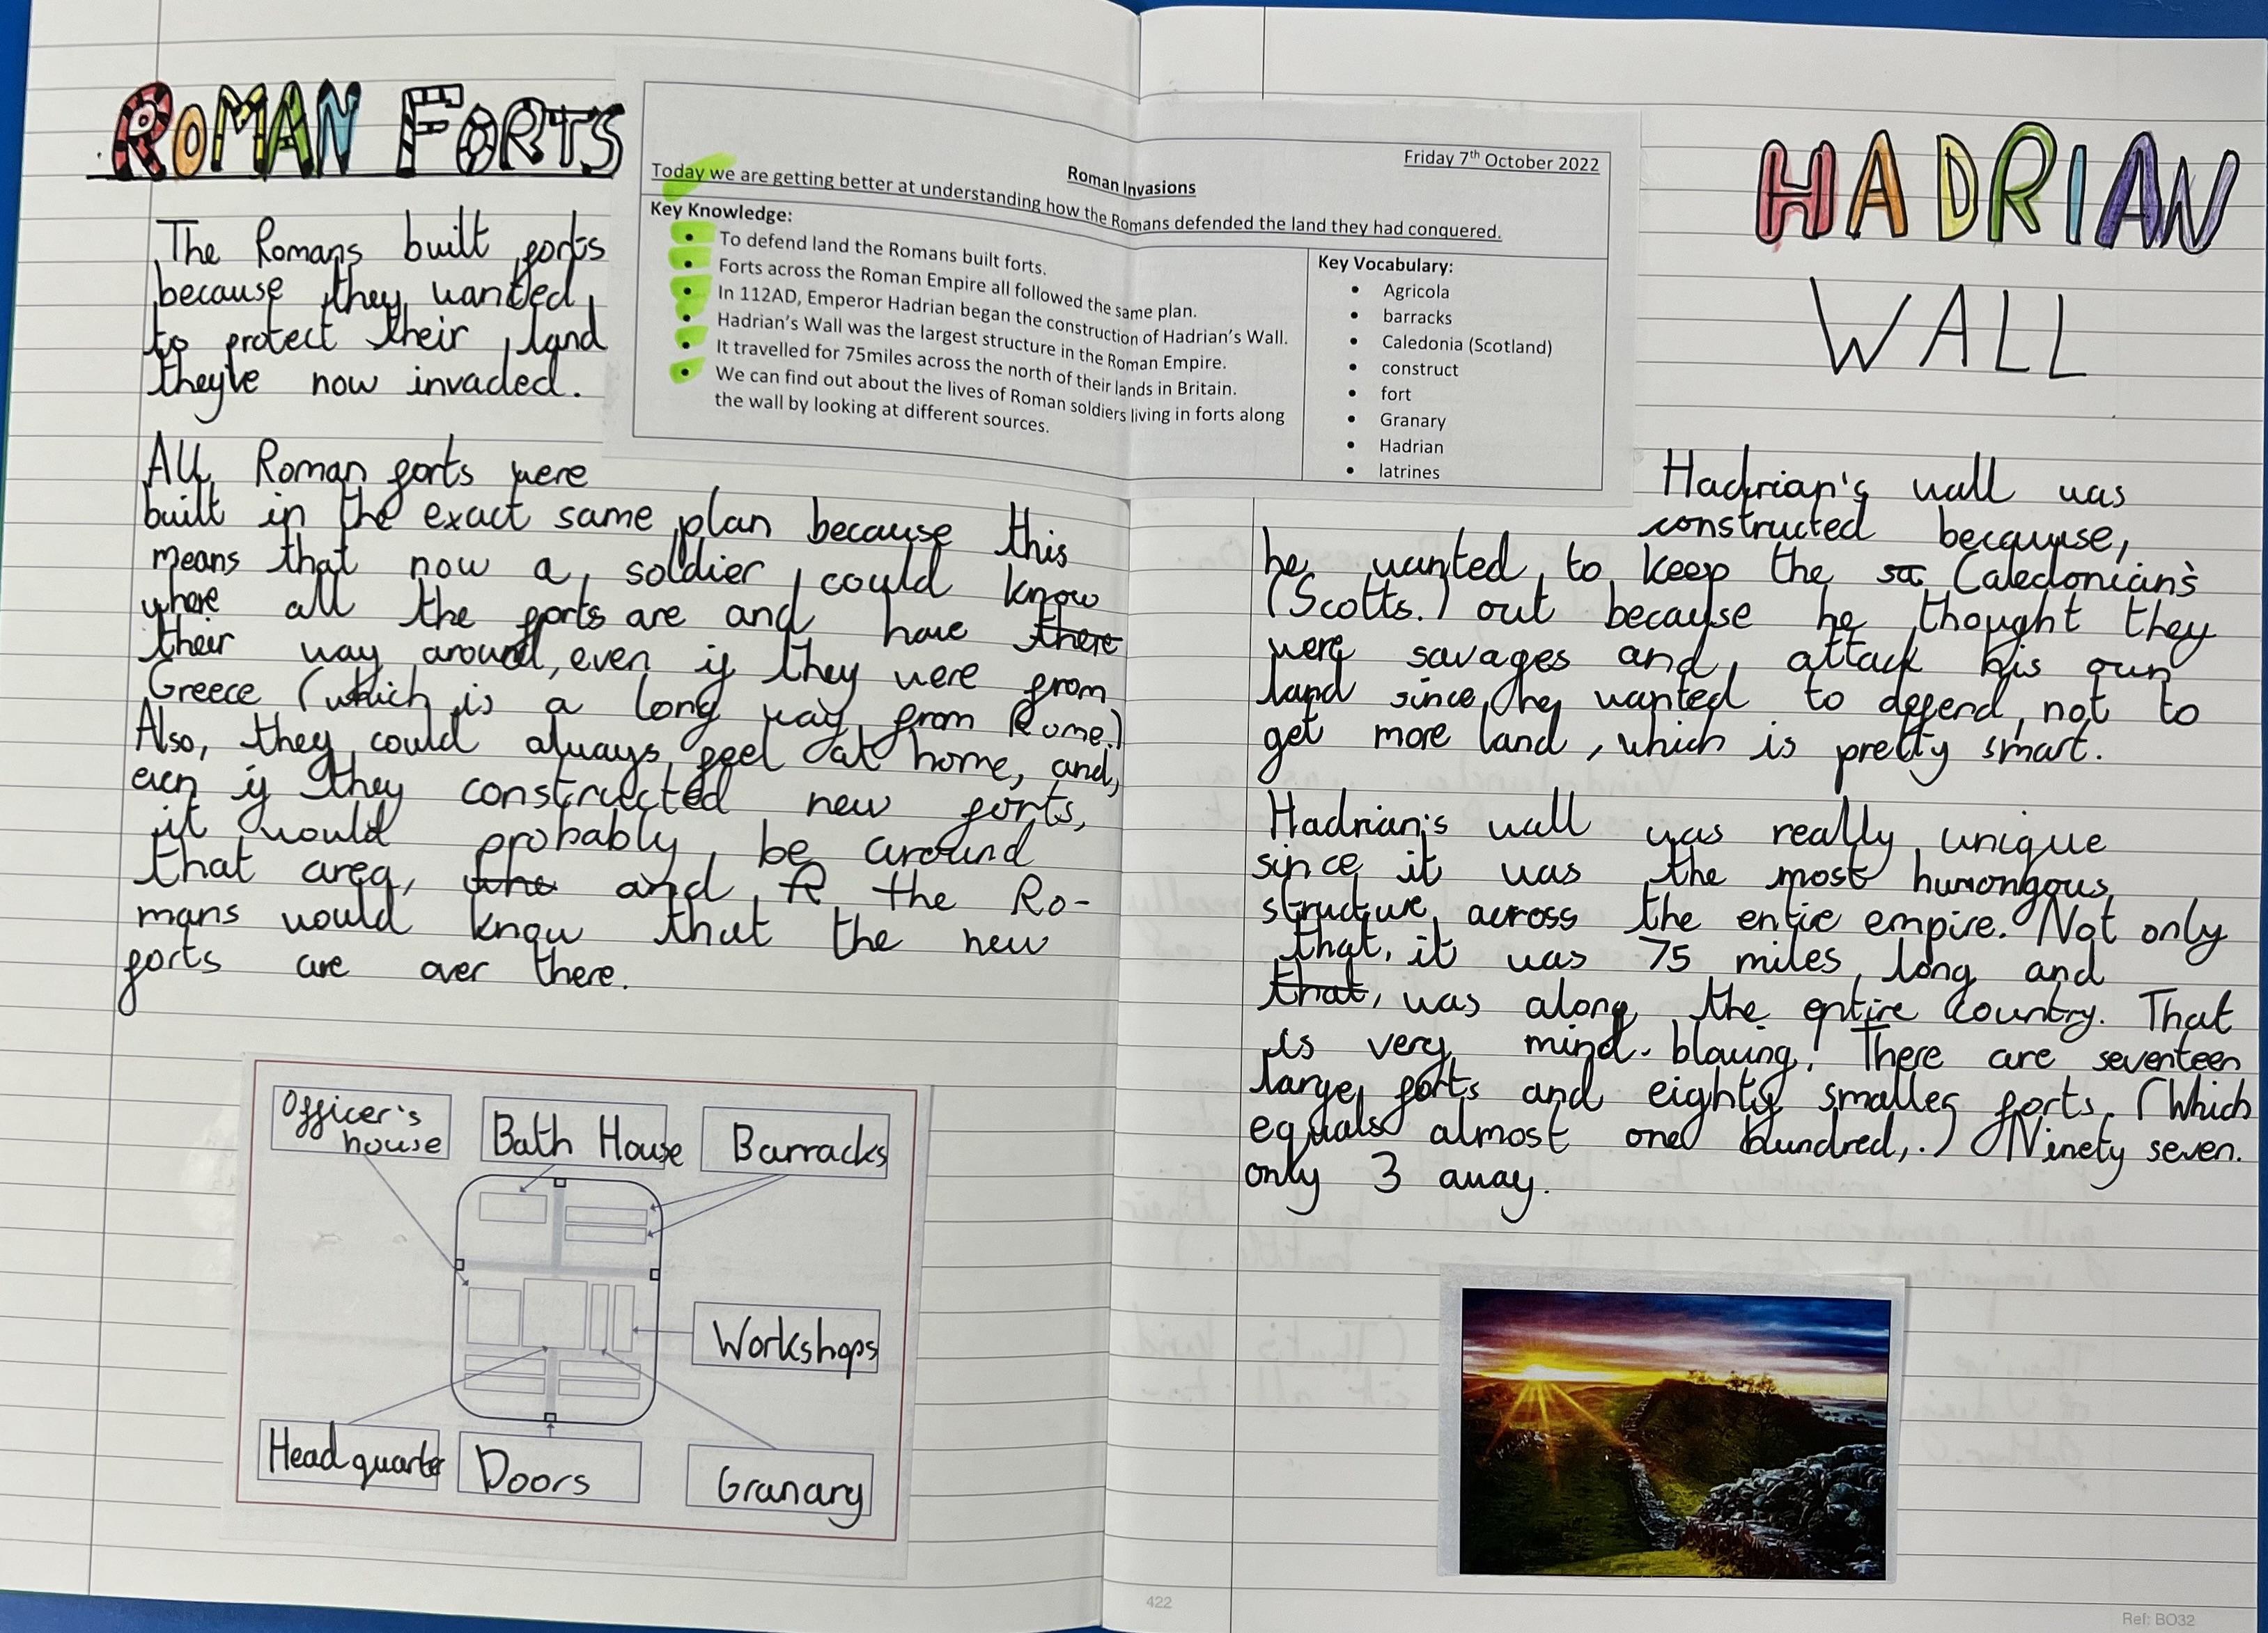 ROMAN FORTS
The Romans built forts
because they wanted
to protect their land
they've now invaded.
All Roman forts were
built in the exact same plan because this
means that now a soldier could know
where all the forts are and have there
their way around, even if they were from
Greece (which is a long way from Rome.)
Also, they could always feel at home, and,
even if they constructed new forts,
it would probably be around
that area, the and R the Ro-
mans would know that the new
forts are over there.
Officer's
house
Bath House
Barracks
Workshops
Head quarter
Doors
Granary
Friday 7th October 2022
Roman Invasions
Today we are getting better at understanding how the Romans defended the land they had conquered.
Key Knowledge:
• To defend land the Romans built forts.
• Forts across the Roman Empire all followed the same plan.
• In 112AD, Emperor Hadrian began the construction of Hadrian's Wall.
• Hadrian's Wall was the largest structure in the Roman Empire.
• It travelled for 75miles across the north of their lands in Britain.
• We can find out about the lives of Roman soldiers living in forts along
the wall by looking at different sources.
Key Vocabulary:
• Agricola
• barracks
• Caledonia (Scotland)
• construct
• fort
• Granary
• Hadrian
• latrines
HADRIAN
WALL
Hadrian's wall was
constructed becauyse,
he wanted to keep the sc Caledonian's
(Scotts.) out because he thought they
were savages and attack his own
land since he wanted to defend, not to
get more land, which is pretty smart.
Hadrian's wall was really unique
since it was the most humongous
structure across the entire empire. Not only
that, it was 75 miles long and
that, was along the entire country. That
is very mind-blowing! There are seventeen
large forts and eighty smaller forts. (Which
equals almost one hundred,.) Ninety seven.
only 3 away.
422
Ref: BO32